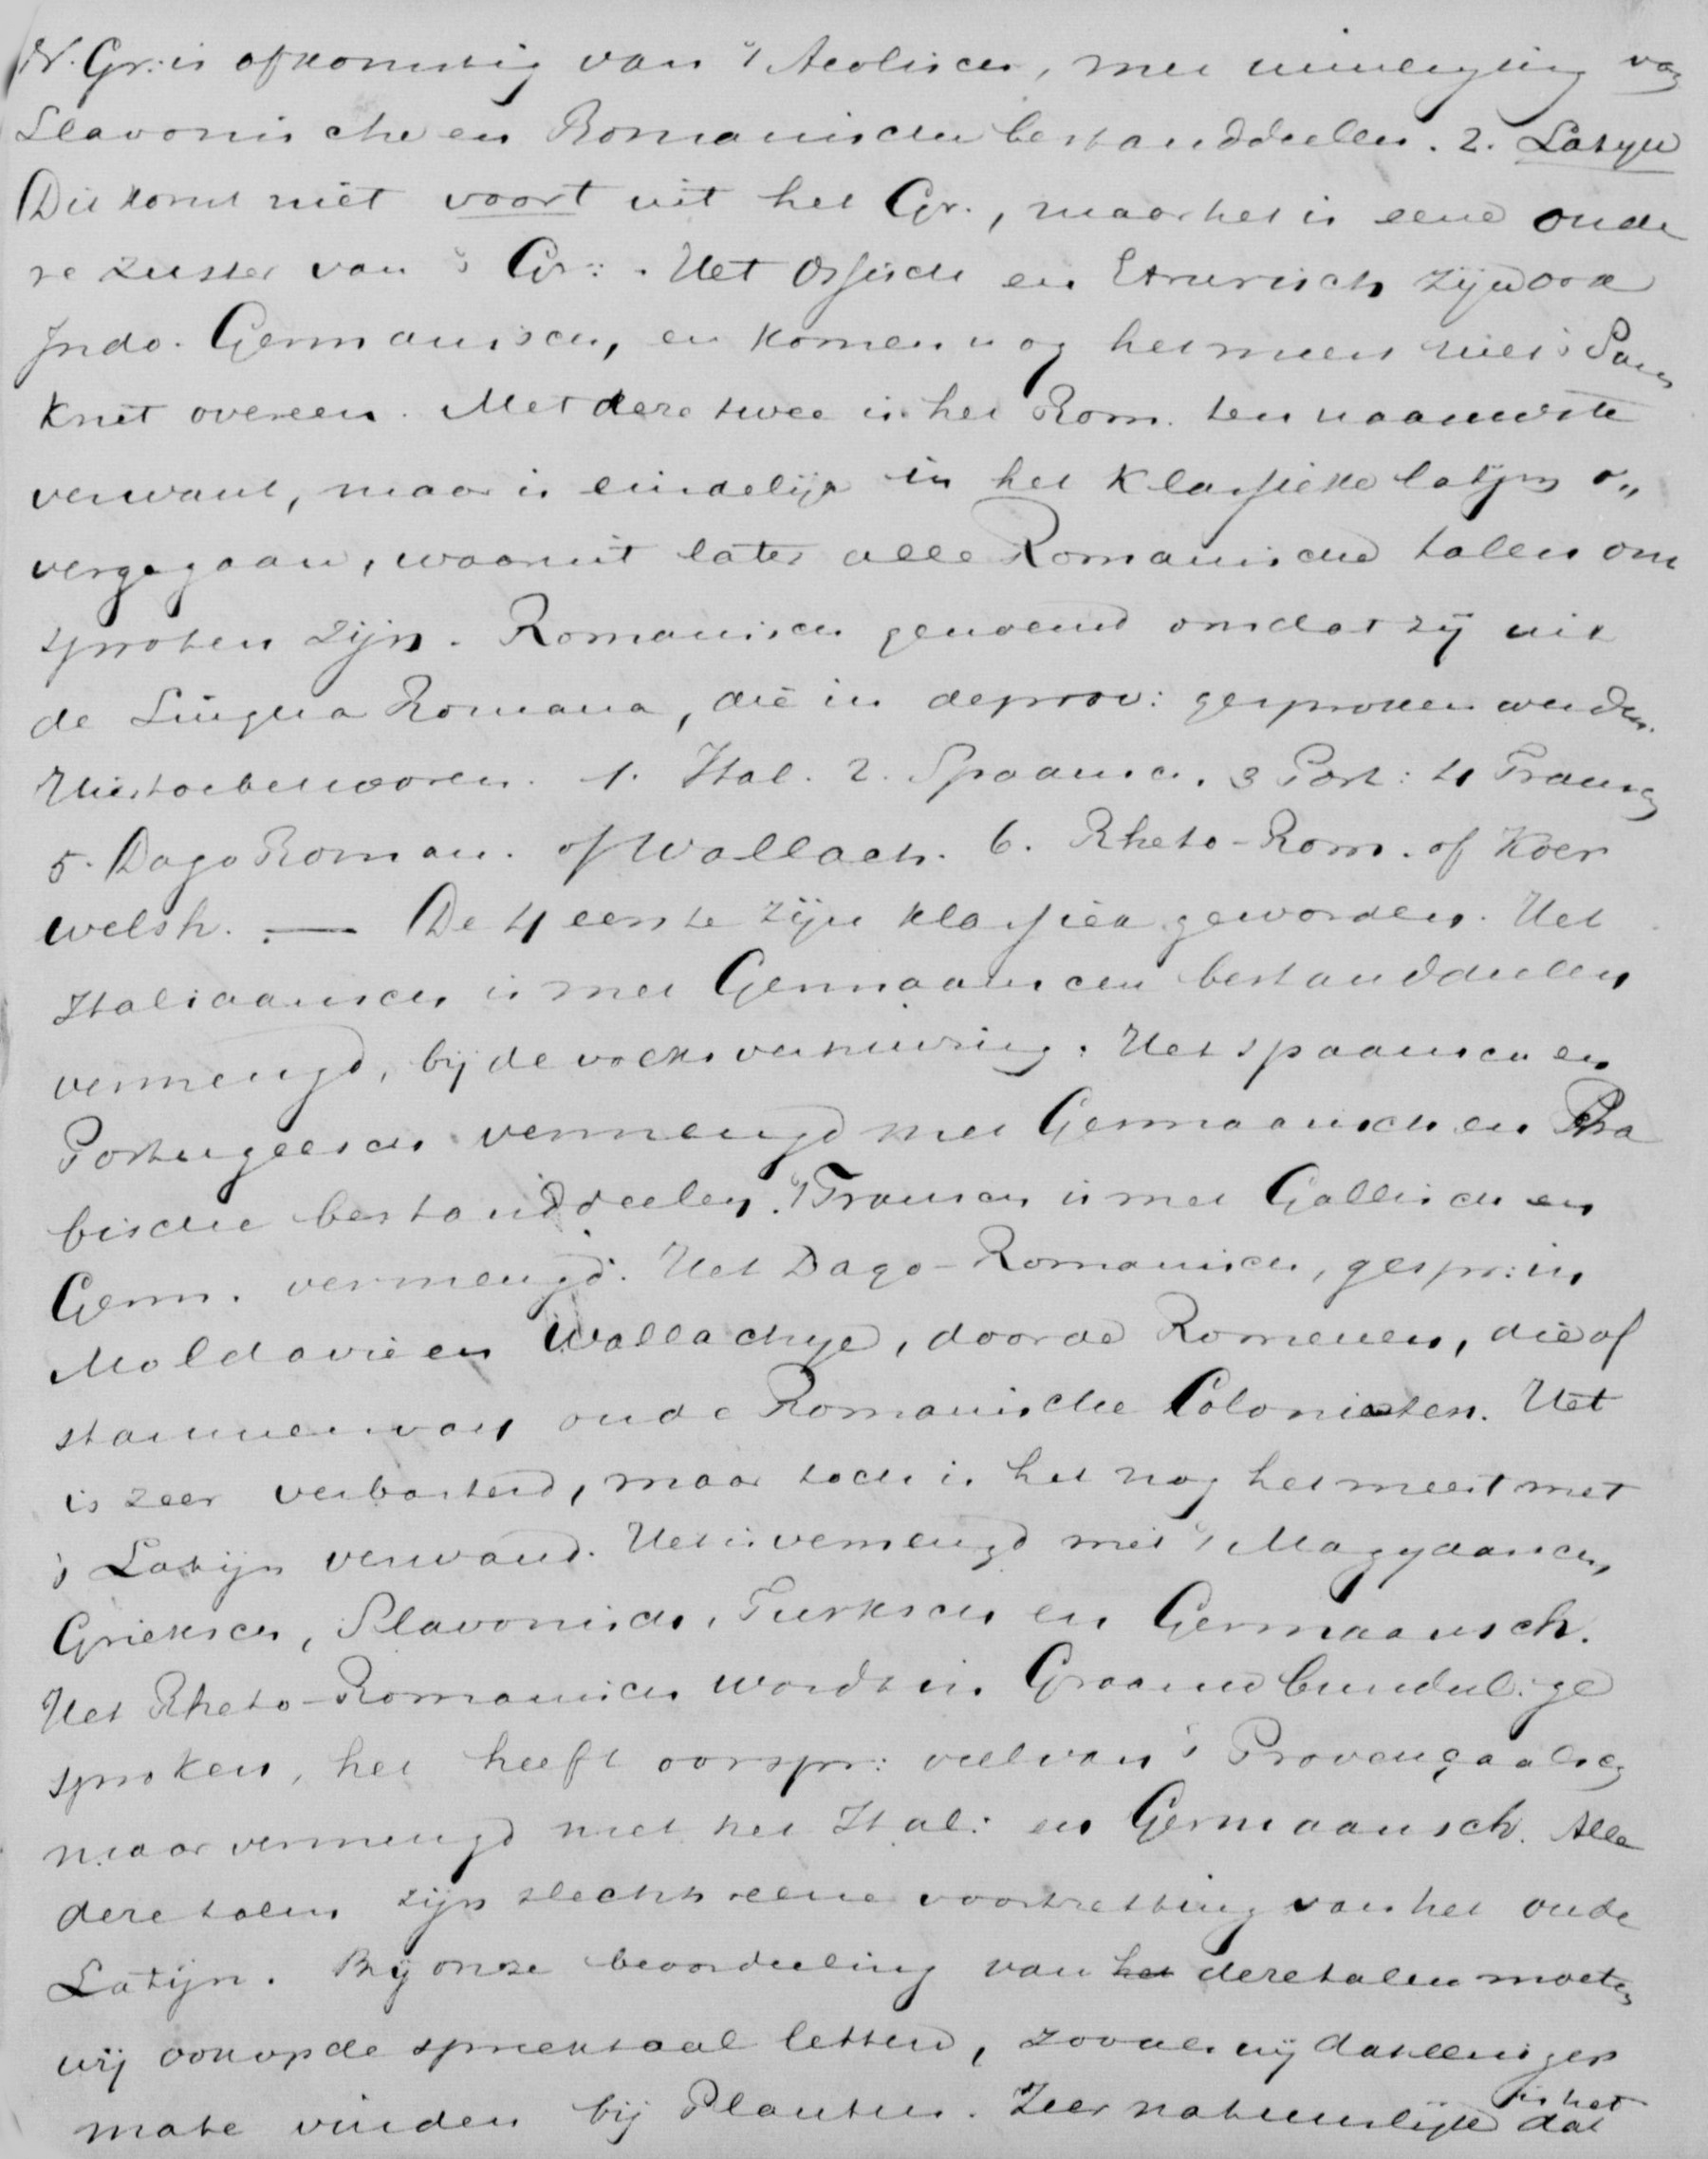 N. Gr: is afkomstig van 't Aeolisch, met inmenging van
Slavonische en Romanische bestanddeelen. 2. Latijn
Dit komt niet voort uit het Gr., maar het is eene oude
re zuster van 't Gr:. Het Oskisch en Etrurisch zijn ook
Indo-Germanisch, en komen nog het meest met 't Sans
kriet overeen. Met deze twee is het Rom. ten naauwste
verwant, maar is eindelijk in het Klassieke latijn o„
vergegaan, waaruit later alle Romanische talen ont
sproten zijn. Romanisch genoemd omdat zij uit
de Lingua Romana, die in de prov: gesproken werden.
Hiertoe behooren. 1. Ital. 2. Spaansch. 3 Port: 4 Fransch
5. Dago Roman. of Wallach. 6. Rheto-Rom. of Koer
welsh. — De 4 eerste zijn klassiek geworden. Het
Italiaansch is met Germaanschen bestanddeelen
vermengd, bij de volksverhuizing. Het spaansch en
Portugeesch vermengd met Germaansch en Ara
bische bestanddeelen. 't Fransch is met Gallisch en
Germ. vermengd. Het Dago-Romanisch, gespr: in
Moldavie en Wallachije, door de Romenen, die af
stammen van oude Romanische Colonisten. Het
is zeer verbasterd, maar toch is het nog het meest met
't Latijn verwand. Het is vemengd met 't Magyaansch,
Grieksch, Slavonisch, Turksch en Germaansch.
Het Rheto-Romanisch wordt in Graauwbunder. ge
sproken, het heeft oorspr: veel van 't Provençaalsch
maar vermengd met het Ital: en Germaansch. Alle
deze talen zijn slechts eene voortzetting van het oude
Latijn. Bij onze beoordeeling van het deze talen moeten
wij ook op de spreektaal letten, zooals wij dat eeniger
mate vinden bij Plautus. Zeer natuurlijk is het dat